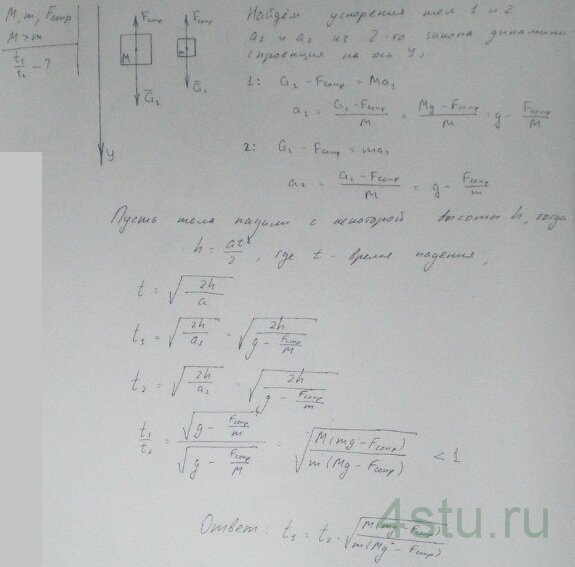 M, m, Fсопр
M > m
t₁/t₂ - ?
Fсопр
Fсопр
M
m
G₁
G₂
y
Найдём ускорения тел 1 и 2
a₁ и a₂ из 2-го закона динамики
(проекция на ось y)
1: G₁ - Fсопр = Ma₁
a₁ = (G₁ - Fсопр)/M = (Mg - Fсопр)/M = g - Fсопр/M
2: G₂ - Fсопр = ma₂
a₂ = (G₂ - Fсопр)/M = g - Fсопр/m
Пусть тела падали с некоторой высоты h, тогда
h = at²/2, где t - время падения,
t = √(2h/a)
t₁ = √(2h/a₁) = √(2h/(g - Fсопр/M))
t₂ = √(2h/a₂) = √(2h/(g - Fсопр/m))
t₁/t₂ = √(g - Fсопр/m)/√(g - Fсопр/M) = √(M(mg - Fсопр)/m(Mg - Fсопр)) < 1
Ответ: t₁ = t₂ · √(M(mg - Fсопр)/m(Mg - Fсопр))
4stu.ru